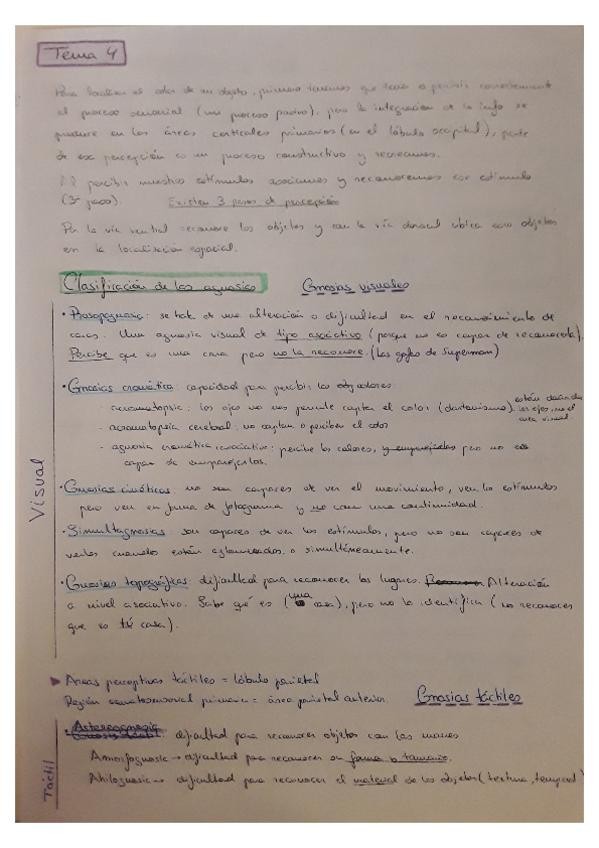 Tema 4
Para localizar el color de un objeto, primero tenemos que tener o percibir correctamente
el proceso sensorial (un proceso pasivo), pero la integración de la info se
produce en las áreas corticales primarias (en el lóbulo occipital), parte
de esa percepción es un proceso constructivo y recreamos.
Al percibir nuestros estímulos asociamos y reconocemos ese estímulo
(3er paso). Existen 3 pasos de percepción
Por la vía ventral reconoce los objetos y con la vía dorsal ubica esos objetos
en la localización espacial.
Clasificación de las agnosias Gnosias visuales
• Prosopagnosia: se trata de una alteración o dificultad en el reconocimiento de
caras. Una agnosia visual de tipo asociativo (porque no es capaz de reconocerla).
Percibe que es una cara pero no la reconoce. (Las gafas de Superman)
• Gnosias cromática: capacidad para percibir los
- : los ojos no nos permite captar el color (daltonismo). están dañados los ojos, no el área visual
- acromatopsia cerebral: no captan o perciben el color
- agnosia cromática asociativa: percibe los colores, pero no es
capaz de emparejarlos.
• Gnosias cinéticas: no son capaces de ver el movimiento, ven los estímulos
pero ven en forma de fotograma y no con una continuidad.
• Simultagnosias: son capaces de ver los estímulos, pero no son capaces de
verlos cuando están aglomerados o simultáneamente.
• Gnosias topográficas: dificultad para reconocer los lugares. Alteración
a nivel asociativo. Sabe qué es (una casa), pero no la identifica (no reconoces
que es tú casa).
Visual
▶ Areas perceptivas táctiles = lóbulo parietal
Región somatosensorial primaria = área parietal anterior. Gnosias táctiles
• Astereognosia: dificultad para reconocer objetos con las manos
Amorfognosia → dificultad para reconocer su forma o tamaño.
Ahilognosia → dificultad para reconocer el material de los objetos (textura, temperat)
Táctil